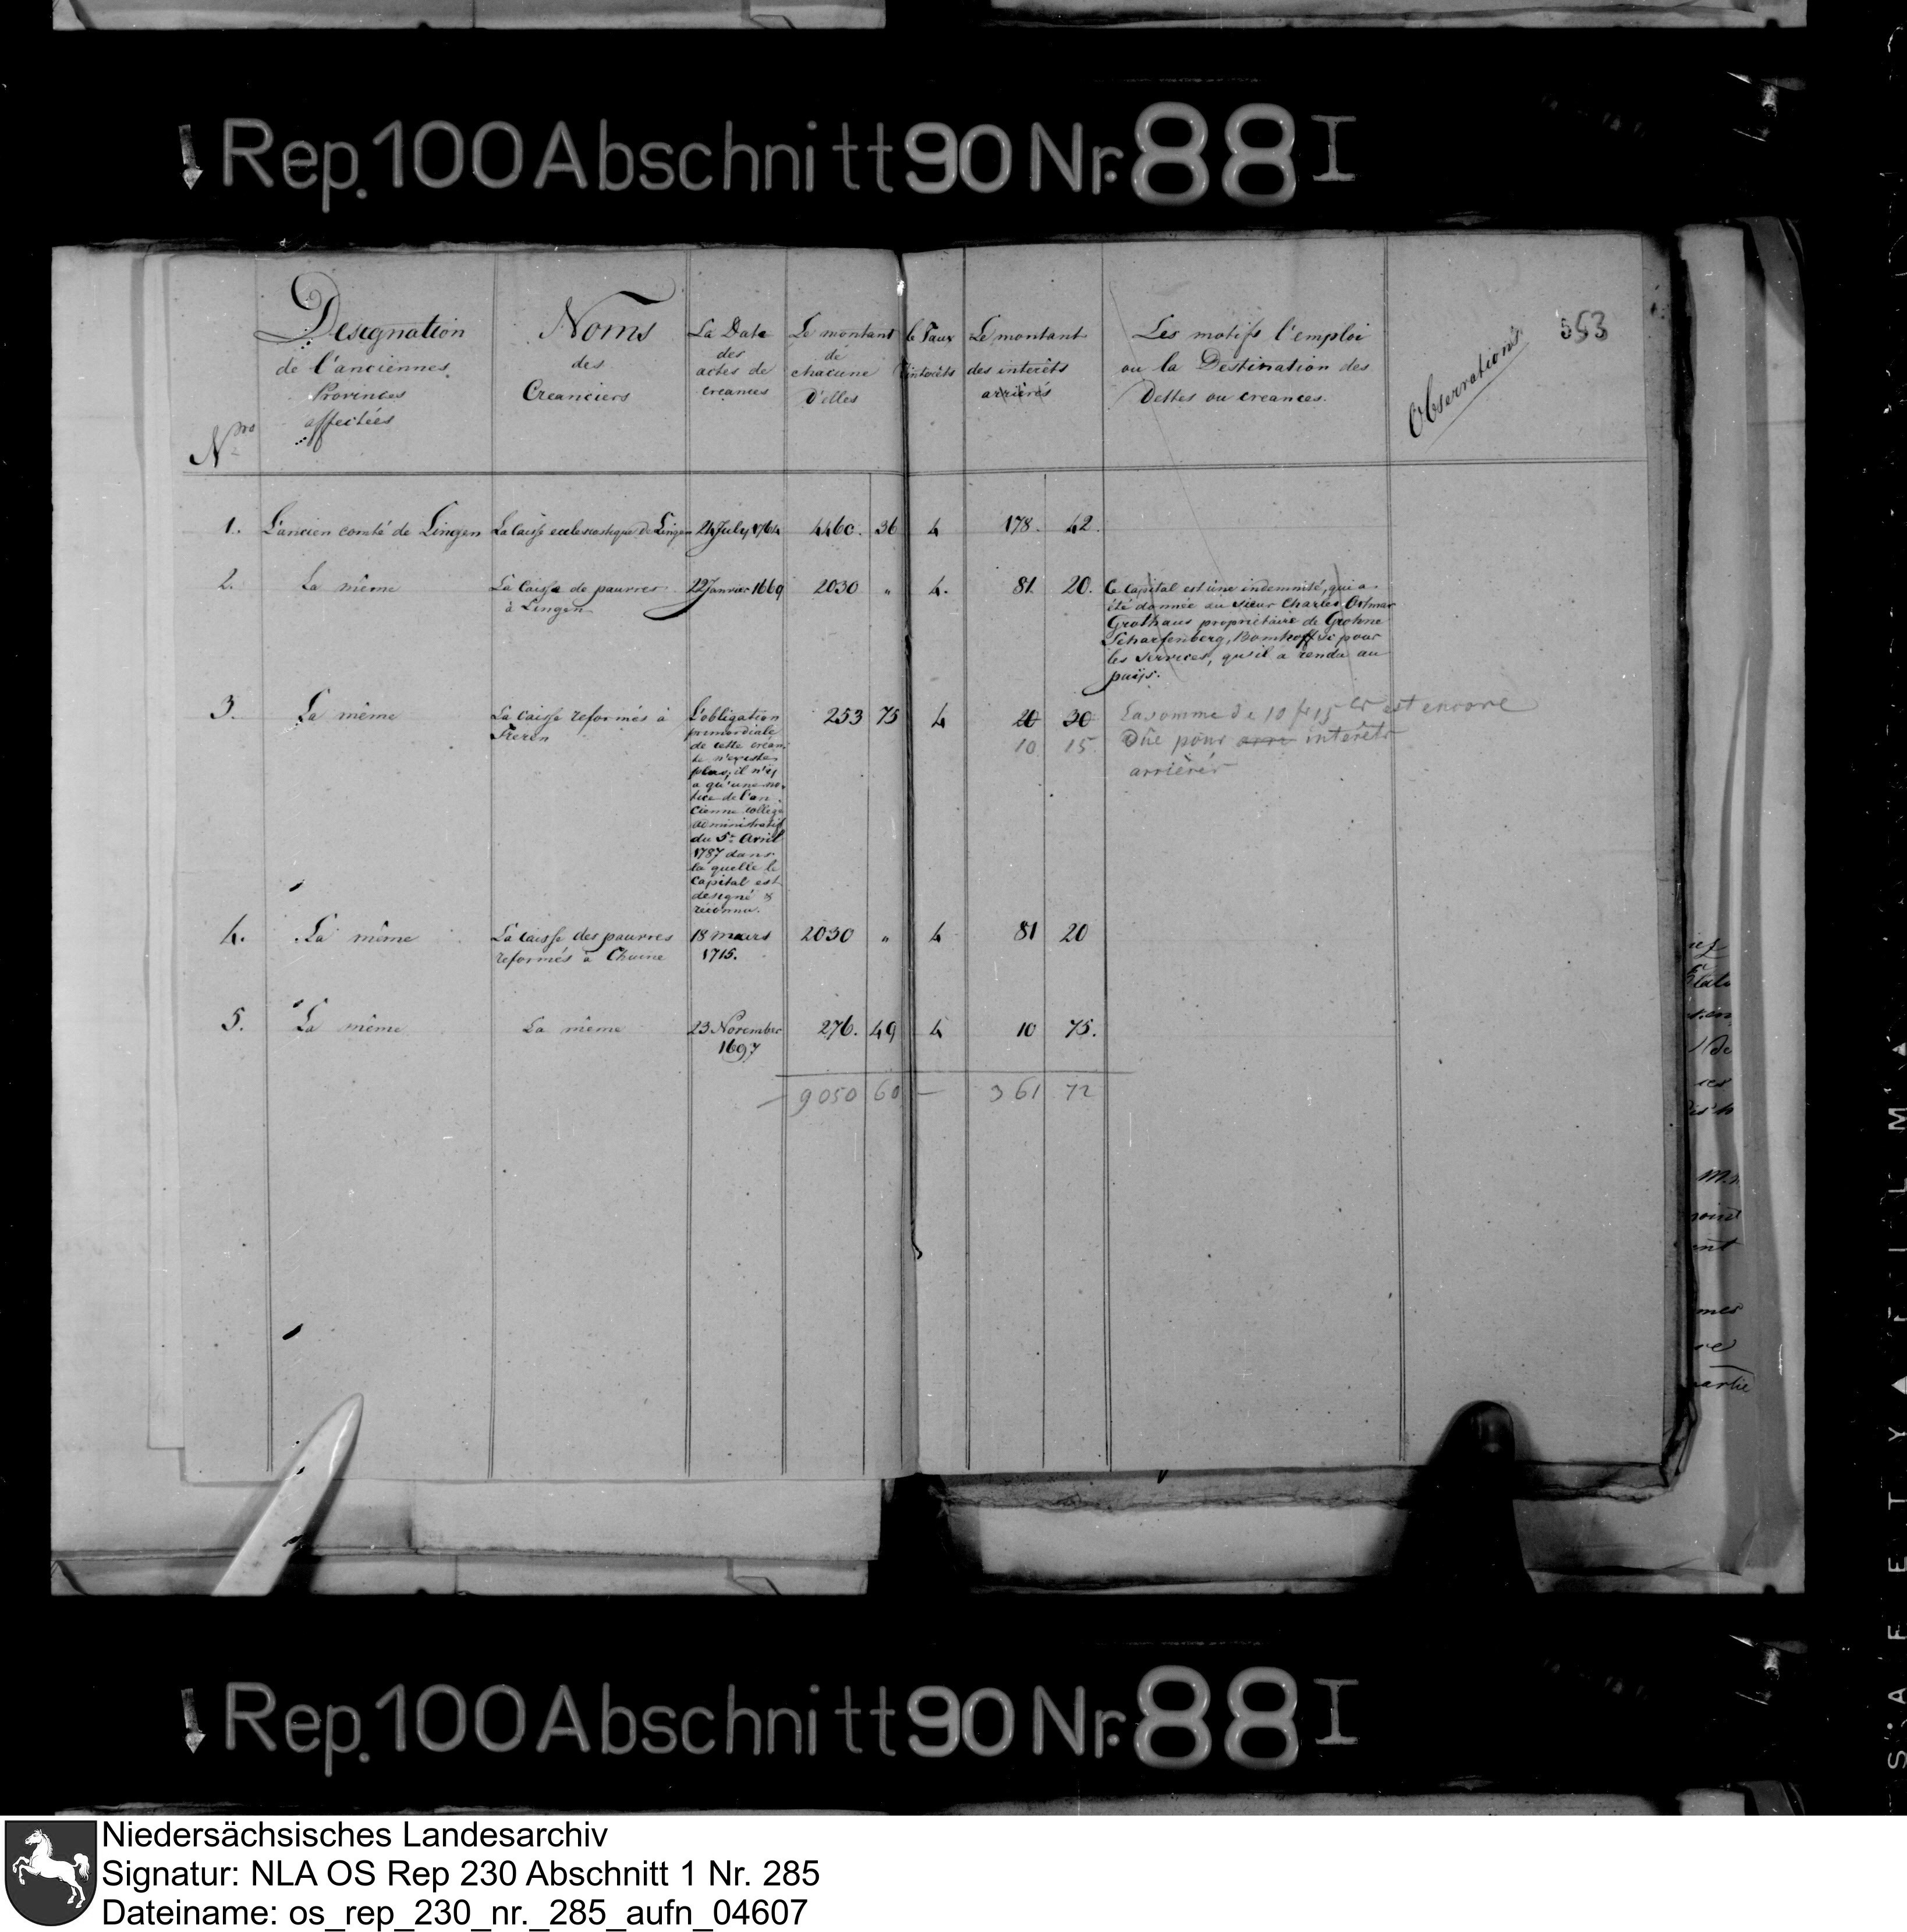 Rep. 100 Abschnitt 90 Nr. 88 I
553
Nro
Designation
de l'anciennes
Provinces
affectées
Noms
des
Creanciers
La Date
des
actes de
creances
Le montant
de
chacune
D'elles
le Taux
interêts
Le montant
des interêts
arrièrés
Les motifs l'emploi
ou la Destination des
Dettes ou creances.
Observations
1. L'ancien comté de Lingen La caisse ecclesiastique de Lingen 24 July 1764 4460. 36 4 178. 42.
2. La même La Caisse de pauvres à Lingen 22 Janvier 1669 2030 " 4. 81 20.
Ce capital est une indemnité, qui a
été donnée au sieur Charles Ostmar
Grothaus propriétaire de Grohne
Scharfenberg, Bomhoff & pour
les services, qu'il a rendu au
païjs.
3. La même La caisse reformés à Freren 253 75 4 20 30
10 15.
L'obligation
primordiale
de cette crean-
ce n'existe
plus, il n'ij
a qu'une no-
tice de l'an-
cienne college
administratif
du 5t. Avril
1787 dans
la quelle le
Capital est
designé &
reconnu.
La somme de 10 fr 15 cs est encore
Dûe pour arre interêts
arrièrés
4. La même La caisse des pauvres reformés à Thuine 18 mars 1715. 2030 " 4 81 20
5. La même La même 23 November 1697 276. 49 4 10 75.
— 9050 60 — 361 72
Rep. 100 Abschnitt 90 Nr. 88 I
Niedersächsisches Landesarchiv
Signatur: NLA OS Rep 230 Abschnitt 1 Nr. 285
Dateiname: os_rep_230_nr._285_aufn_04607